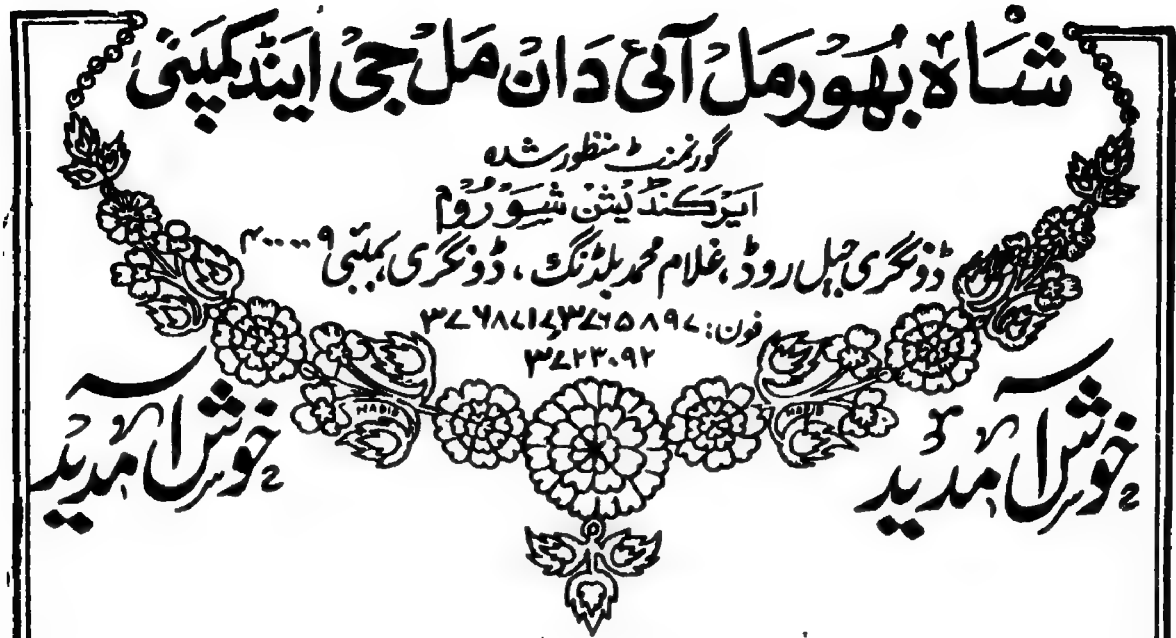 شاہ بھورمل آئی دان مل جی اینڈ کمپنی
گورنمنٹ منظور شدہ
ایرکنڈیشن شوروم
ڈونگری جیل روڈ، غلام محمد بلڈنگ، ڈونگری، بمبئی ۴۰۰۰۰۹
فون: ۳۷۶۵۸۹۷، ۳۷۶۸۷۱۷
۳۷۲۳۰۹۲
HABIB HABIB
خوش آمدید خوش آمدید